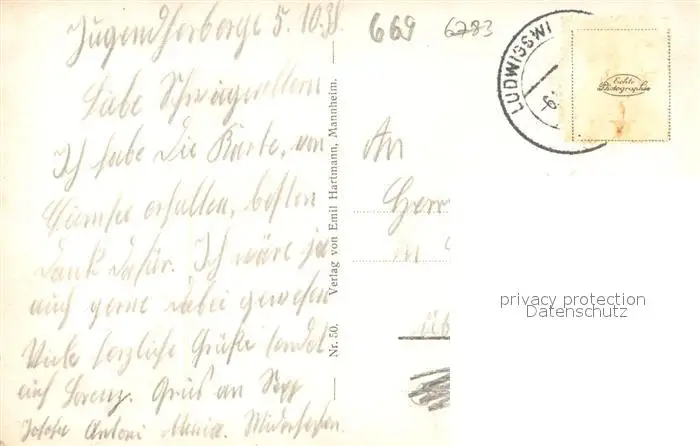 Jugendherberge 5.10.38
Liebe Schwiegereltern
Ich habe die Karte, von
erhalten, besten
Dank dafür. Ich wäre ja
auch gerne dabei gewesen
Viele herzliche Grüße sendet
euch Lorenz. Gruß an Sepp
Antoni Maria.
Nr. 50. Verlag von Emil Hartmann, Mannheim.
669 6783
LUDWIG
Echte
Photographie
An
Herr
in
üb
privacy protection
Datenschutz